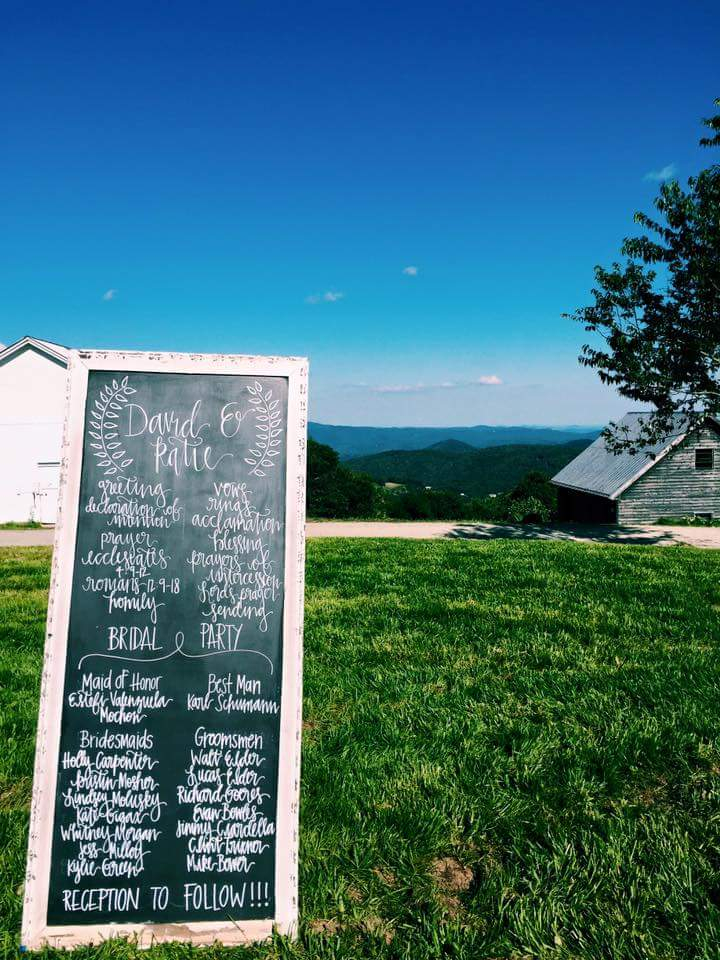 David &
Katie
greeting
declaration of
intention
prayer
4 9-12
romans 12 9-18
homily
vows
rings
acclamation
blessing
prayers of
intercession
lord's prayer
sending
BRIDAL PARTY
Maid of Honor
Estefi Valenzuela
Mochon
Best Man
Karl Schumann
Bridesmaids
Holly Carpenter
Kristin Mosher
Lindsey Molusky
Kate Gigax
Whitney Morgan
Jess Milloy
Kylie Green
Groomsmen
Walt Elder
Lucas Elder
Richard Goeres
Evan Bowles
Jimmy Ciardella
Clint
Mike Bower
RECEPTION TO FOLLOW!!!